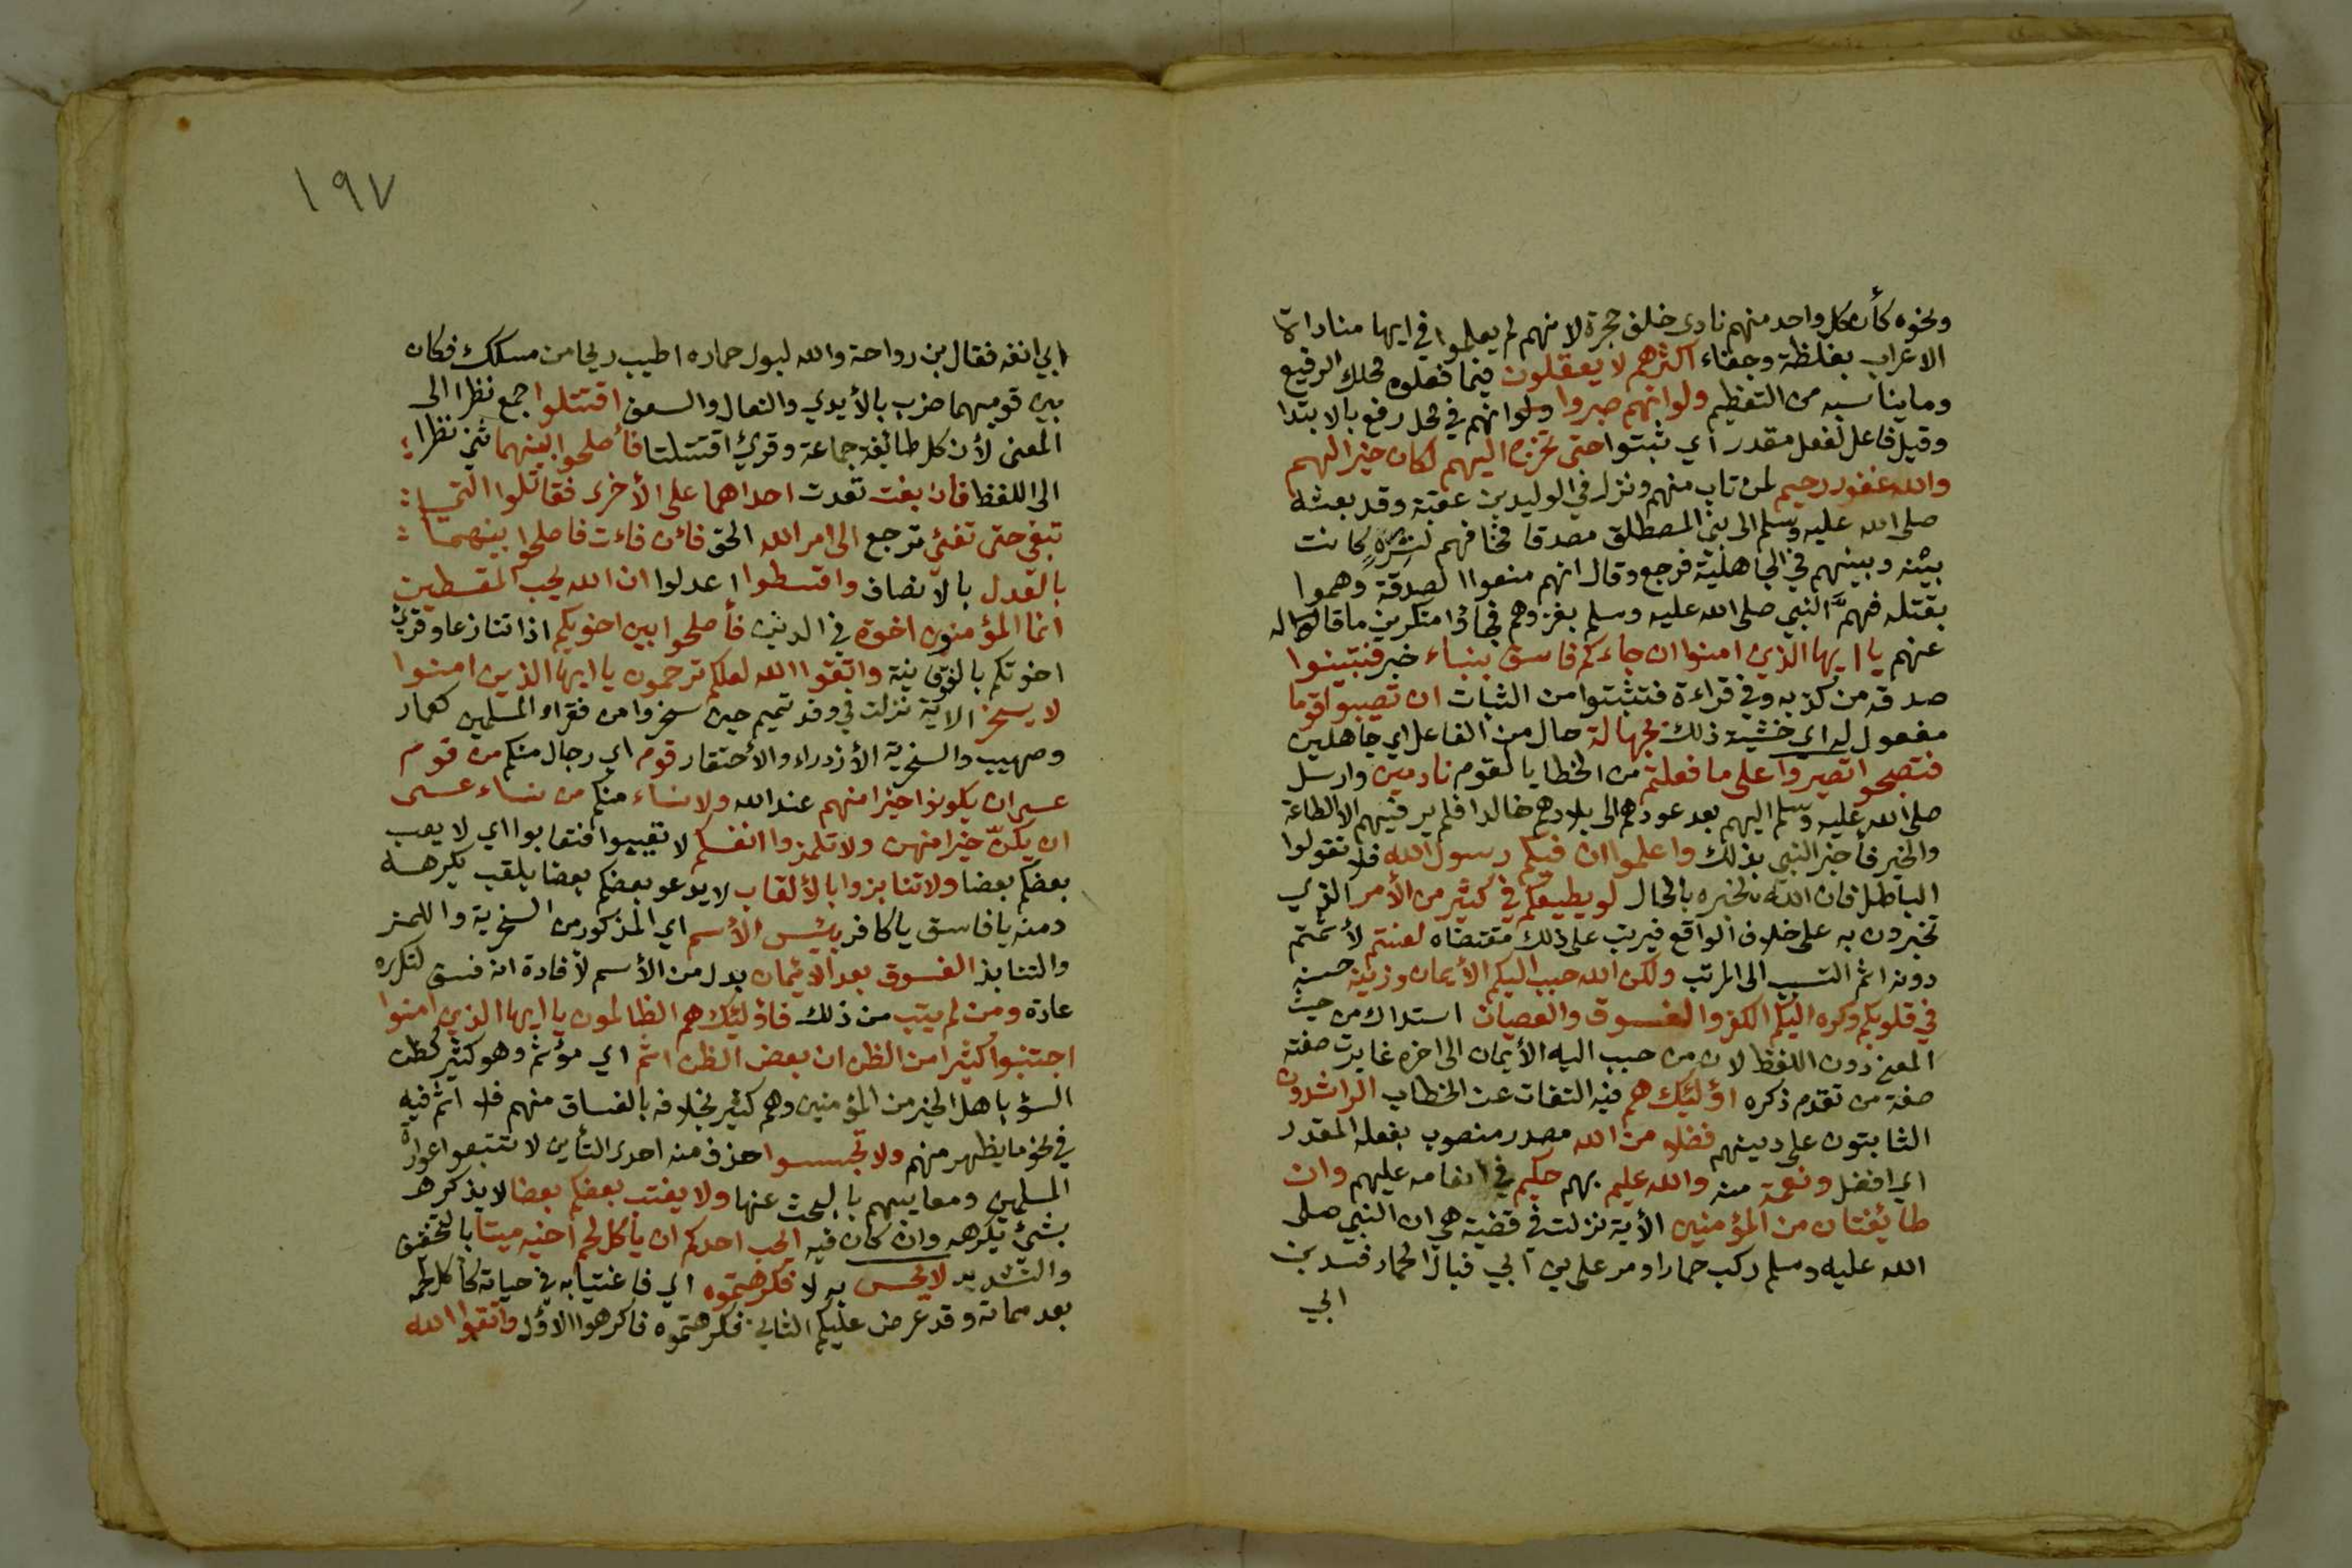 ونحوه كأن كل واحد منهم نادى خلف حجرة لانهم لم يعلموا في ايها مناداة
الاعراب بغلظة وجفاء اكثرهم لا يعقلون فيما فعلوه محلك الرفيع
وما يناسبه من التعظيم ولو انهم صبروا ولو انهم في محل رفع بالابتدا
وقيل فاعل لفعل مقدر اي ثبتوا حتى تخرج اليهم لكان خيرا لهم
والله غفور رحيم لمن تاب منهم ونزل في الوليد بن عقبة وقد بعثه
صلى الله عليه وسلم الى بني المصطلق مصدقا فخافهم لترة كانت
بينه وبينهم في الجاهلية فرجع وقال انهم منعوا الصدقة وهموا
بقتله فهم النبي صلى الله عليه وسلم بغزوهم فجاؤا منكرين ما قاله
عنهم يا ايها الذين امنوا ان جاءكم فاسق بنباء خبر فتبينوا
صدقه من كذبه وفي قراءة فتثبتوا من الثبات ان تصيبوا قوما
مفعول له اي خشية ذلك بجهالة حال من الفاعل اي جاهلين
فتصبحوا تصيروا على ما فعلتم من الخطا بالقوم نادمين وارسل
صلى الله عليه وسلم اليهم بعد عودهم الى بلادهم خالدا فلم ير فيهم الا الطاعة
والخير فأخبر النبي بذلك واعلموا ان فيكم رسول الله فلا تقولوا
الباطل فان الله يخبره بالحال لو يطيعكم في كثير من الأمر الذي
تخبرون به على خلاف الواقع فيرتب على ذلك مقتضاه لعنتم لأثمتم
دونه اثم التسبب الى المرتب ولكن الله حبب اليكم الأيمان وزينه حسنه
في قلوبكم وكره اليكم الكفر والفسوق والعصيان استدراك من حيث
المعنى دون اللفظ لان من حبب اليه الأيمان الى اخره غايرت صفته
صفة من تقدم ذكره اؤلئك هم فيه التفات عن الخطاب الراشدون
الثابتون على دينهم فضلا من الله مصدر منصوب بفعله المقدر
اي افضل ونعمة منه والله عليم بهم حكيم في انعامه عليهم وان
طائفتان من المؤمنين الأية نزلت في قضية هي ان النبي صلى
الله عليه وسلم ركب حمارا ومر على بن ابي فبال الحمار فسد بن
ابي
١٩٧
ابي انفه فقال بن رواحة والله لبول حماره اطيب ريحا من مسكك فكان
بين قوميهما ضرب بالأيدي والنعال والسعف اقتتلوا جمع نظرا الى
المعنى لأن كل طائفة جماعة وقرئ اقتتلتا فأصلحوا بينهما ثني نظرا
الى اللفظ فان بغت تعدت احداهما على الأخرى فقاتلوا التي
تبغي حتى تفئ ترجع الى امر الله الحق فائن فاءت فاصلحوا بينهما
بالعدل بالانصاف واقسطوا اعدلوا ان الله يحب المقسطين
انما المؤمنون اخوة في الدين فأصلحوا بين اخويكم اذا تنازعا وقرئ
اخوتكم بالفوقانية واتقوا الله لعلكم ترحمون يا ايها الذين امنوا
لا يسخر الاية نزلت في وفد تميم حين سخروا من فقراء المسلمين كعمار
وصهيب والسخرية الأزدراء والأحتقار قوم اي رجال منكم من قوم
عسى ان يكونوا خيرا منهم عند الله ولا نساء منكم من نساء عسى
ان يكنّ خيرا منهن ولا تلمزوا انفسكم لا تعيبوا فتعابوا اي لا يعب
بعضكم بعضا ولا تنابزوا بالألقاب لا يدعو بعضكم بعضا بلقب يكرهه
ومنه يا فاسق يا كافر بئس الأسم اي المذكور من السخرية واللمز
والتنابذ الفسوق بعد الأيمان بدل من الأسم لأفادة انه فسق لتكرره
عادة ومن لم يتب من ذلك فاؤلئك هم الظالمون يا ايها الذين امنوا
اجتنبوا كثيرا من الظن ان بعض الظن اثم اي مؤثم وهو كثير كظن
السؤ باهل الخير من المؤمنين وهم كثير بخلافه بالفساق منهم فلا اثم فيه
في نحو ما يظهر منهم ولا تجسسوا حذف منه احدى التأين لا تتبعوا عوراة
المسلمين ومعايبهم بالبحث عنها ولا يغتب بعضكم بعضا لا يذكره
بشئ يكرهه وان كان فيه ايحب احدكم ان يأكل لحم اخيه ميتا بالتخفيف
والتشديد لا يحس به لا فكرهتموه اي فاغتيابه في حياته كأكل لحمه
بعد مماته وقد عرض عليكم الثاني فكرهتموه فاكرهوا الاؤل واتقوا الله